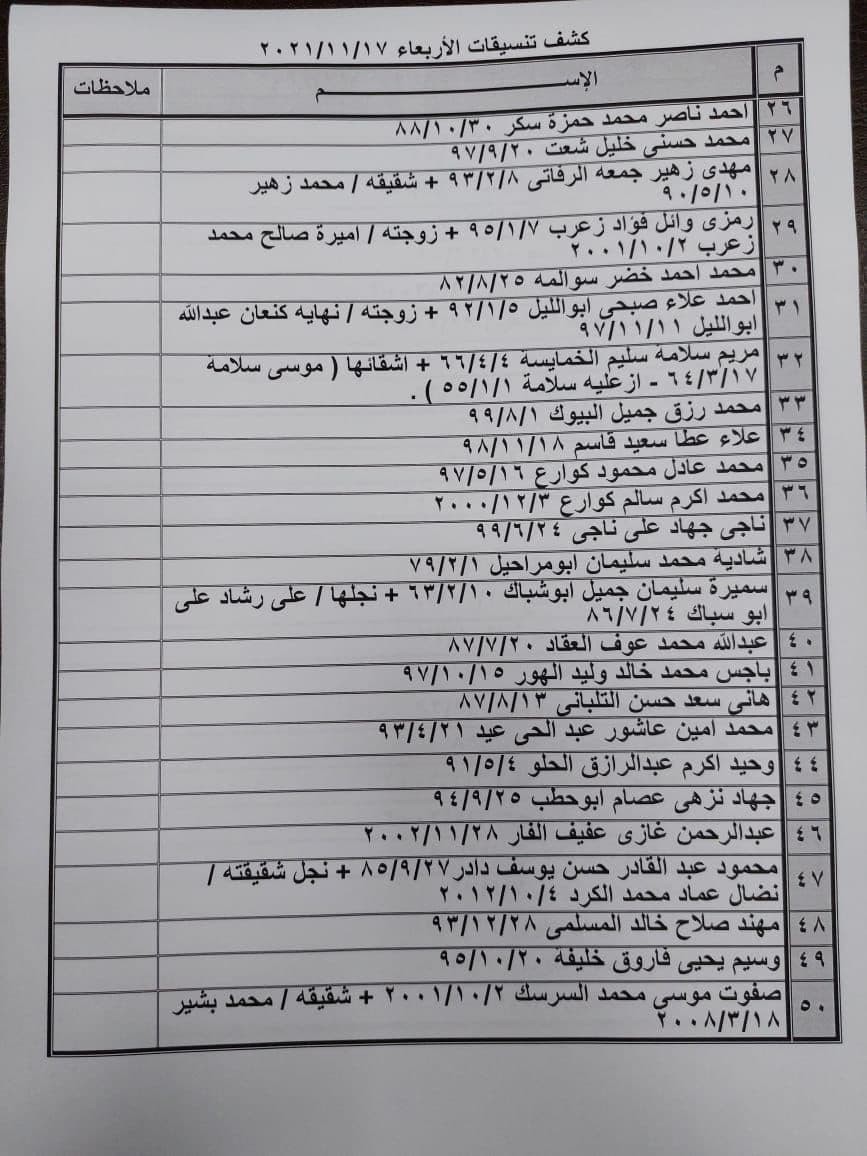 كشف تنسيقات الأربعاء ٢٠٢١/١١/١٧
م الإســـــــــم ملاحظات
٢٦ احمد ناصر محمد حمزة سكر ٨٨/١٠/٣٠
٢٧ محمد حسنى خليل شعت ٩٧/٩/٢٠
٢٨ مهدى زهير جمعه الرفاتى ٩٣/٢/٨ + شقيقه / محمد زهير
٩٠/٥/١٠
٢٩ رمزى وائل فؤاد زعرب ٩٥/١/٧ + زوجته / اميرة صالح محمد
زعرب ٢٠٠١/١٠/٢
٣٠ محمد احمد خضر سوالمه ٨٢/٨/٢٥
٣١ احمد علاء صبحى ابوالليل ٩٢/١/٥ + زوجته / نهايه كنعان عبدالله
ابوالليل ٩٧/١١/١١
٣٢ مريم سلامة سليم الخمايسة ٦٦/٤/٤ + اشقائها ( موسى سلامة
٦٤/٣/١٧ - ازعليه سلامة ٥٥/١/١ ) .
٣٣ محمد رزق جميل البيوك ٩٩/٨/١
٣٤ علاء عطا سعيد قاسم ٩٨/١١/١٨
٣٥ محمد عادل محمود كوارع ٩٧/٥/١٦
٣٦ محمد اكرم سالم كوارع ٢٠٠٠/١٢/٣
٣٧ ناجى جهاد على ناجى ٩٩/٦/٢٤
٣٨ شادية محمد سليمان ابومراحيل ٧٩/٢/١
٣٩ سميرة سليمان جميل ابوشباك ٦٣/٢/١٠ + نجلها / على رشاد على
ابو سباك ٨٦/٧/٢٤
٤٠ عبدالله محمد عوف العقاد ٨٧/٧/٢٠
٤١ باجس محمد خالد وليد الهور ٩٧/١٠/١٥
٤٢ هانى سعد حسن التلبانى ٨٧/٨/١٣
٤٣ محمد امين عاشور عبد الحى عيد ٩٣/٤/٢١
٤٤ وحيد اكرم عبدالرازق الحلو ٩١/٥/٤
٤٥ جهاد نزهى عصام ابوحطب ٩٤/٩/٢٥
٤٦ عبدالرحمن غازى عفيف الفار ٢٠٠٢/١١/٢٨
٤٧ محمود عبد القادر حسن يوسف دادر٨٥/٩/٢٧ + نجل شقيقته /
نضال عماد محمد الكرد ٢٠١٢/١٠/٤
٤٨ مهند صلاح خالد المسلمى ٩٣/١٢/٢٨
٤٩ وسيم يحيى فاروق خليفة ٩٥/١٠/٢٠
٥٠ صفوت موسى محمد السرسك ٢٠٠١/١٠/٢ + شقيقه / محمد بشير
٢٠٠٨/٣/١٨